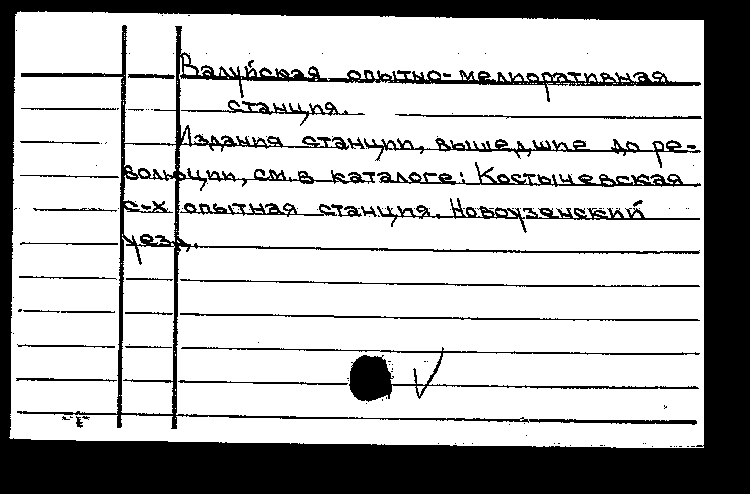 Валуйская опытно-мелиоративная
станция.
Издания станции, вышедшие до ре-
волюции, см. в каталоге: Костычевская
с-х опытная станция. Новоузенский
уезд.